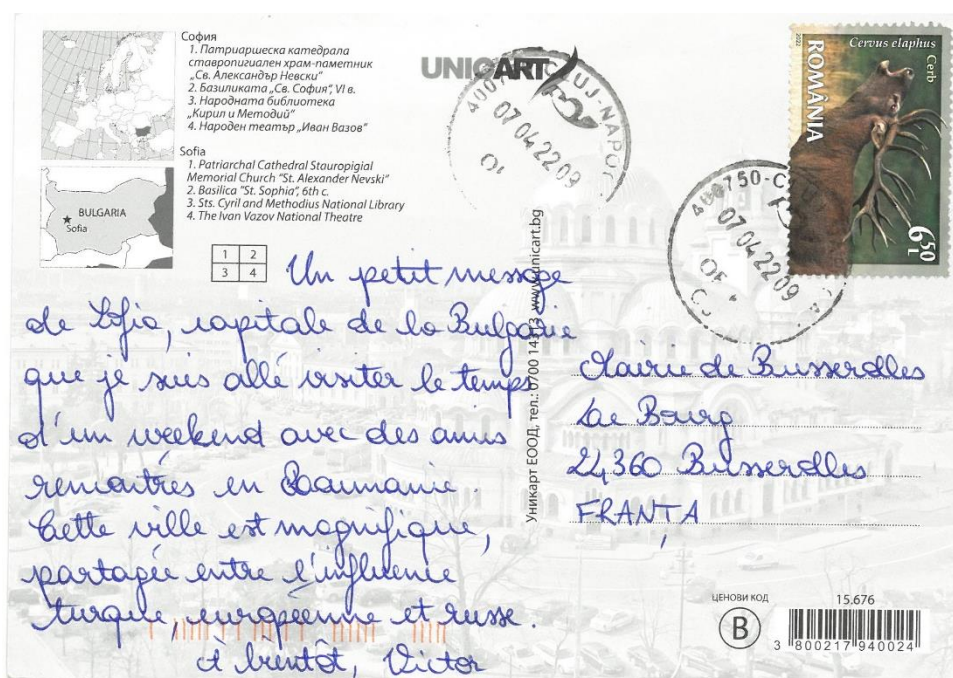 София
1. Патриаршеска катедрала
ставропигиален храм-паметник
„Св. Александър Невски"
2. Базиликата „Св. София", VI в.
3. Народната библиотека
„Кирил и Методий"
4. Народен театър „Иван Вазов"
Sofia
1. Patriarchal Cathedral Stauropigial
Memorial Church "St. Alexander Nevski"
2. Basilica "St. Sophia", 6th c.
3. Sts. Cyril and Methodius National Library
4. The Ivan Vazov National Theatre
BULGARIA
Sofia
1 2
3 4
UNICART
CLUJ-NAPOC
07 04 22 09
400750-C
07 04 22 09
2022
ROMÂNIA
Cervus elaphus
Cerb
6,50
L
Un petit message
de Sofia, capitale de la Bulgarie
que je suis allé visiter le temps
d'un weekend avec des amis
rencontrés en Roumanie.
Cette ville est magnifique,
partagée entre l'influence
turque, européenne et russe.
A bientôt, Victor
Уникарт ЕООД, тел.: 0700 143 13 www.unicart.bg
Mairie de Busserolles
Le Bourg
24360 Busserolles
FRANȚA
ЦЕНОВИ КОД
B
15.676
3 800217 940024